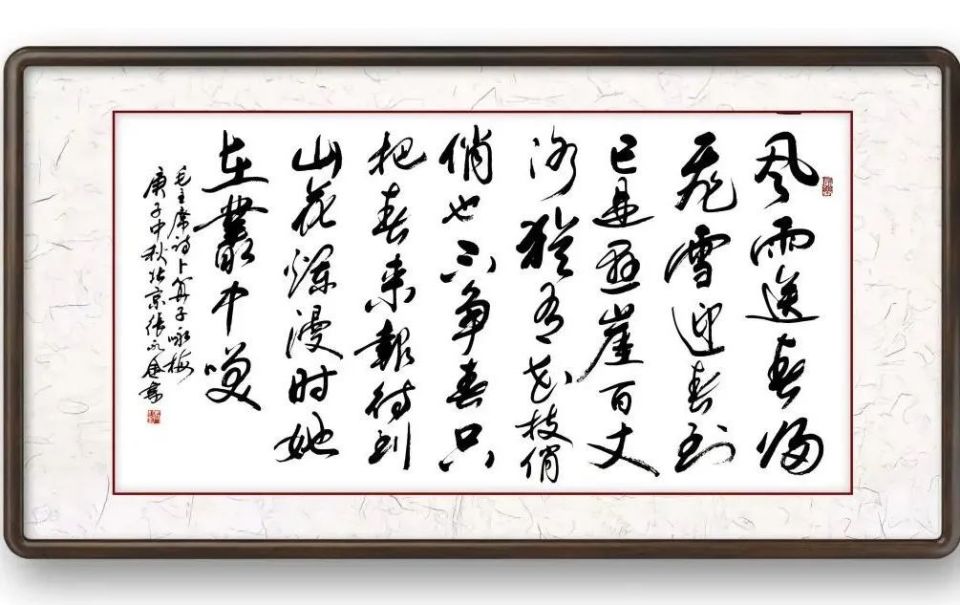 风雨送春归
飞雪迎春到
已是悬崖百丈
冰犹有花枝俏
俏也不争春只
把春来報待到
山花烂漫时她
在叢中咲
毛主席诗卜算子咏梅
庚子中秋北京张永